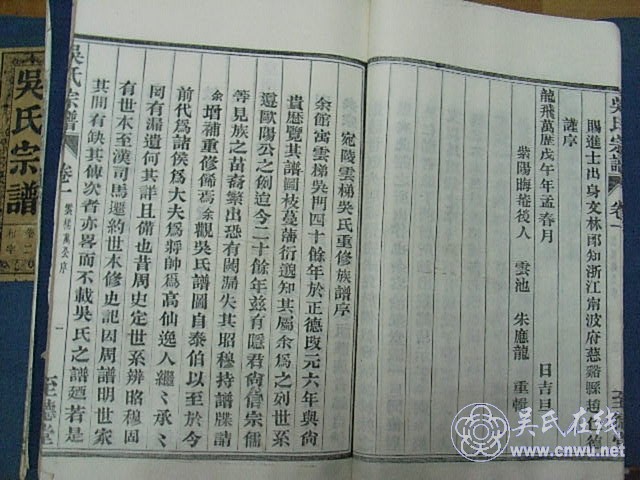 吳氏宗譜 卷一
賜進士出身文林郎知浙江甯波府慈谿縣趙仁德
謹序
龍飛萬歷戊午年孟春月 日吉旦
紫陽晦菴後人 雲池 朱應龍 重輯
宛陵雲梯吳氏重修族譜序
余館寓雲梯吳門四十餘年於正德改元六年與尙
貴歷覽其譜圖枝蔓蕃衍遒知其屬余爲之列世系
遵歐陽公之例迨今二十餘年玆有隱君尙信宗儒
等見族之苗裔繁出恐有闕漏失其昭穆持譜牒請
余增補重修俻焉余觀吳氏譜圖自泰伯以至於今
前代爲諸侯爲大夫爲將帥爲高仙逸人繼〻承〻
罔有漏遺何其詳且備也昔周史定世系辨昭穆因
有世本至漢司馬遷約世本修史記因周譜明世家
其間有缺其傳次者亦畧而不載吳氏之譜廼若是
吳氏宗譜 卷一 一 至德堂
吳氏宗譜
吴氏在线
www.cnwu.net